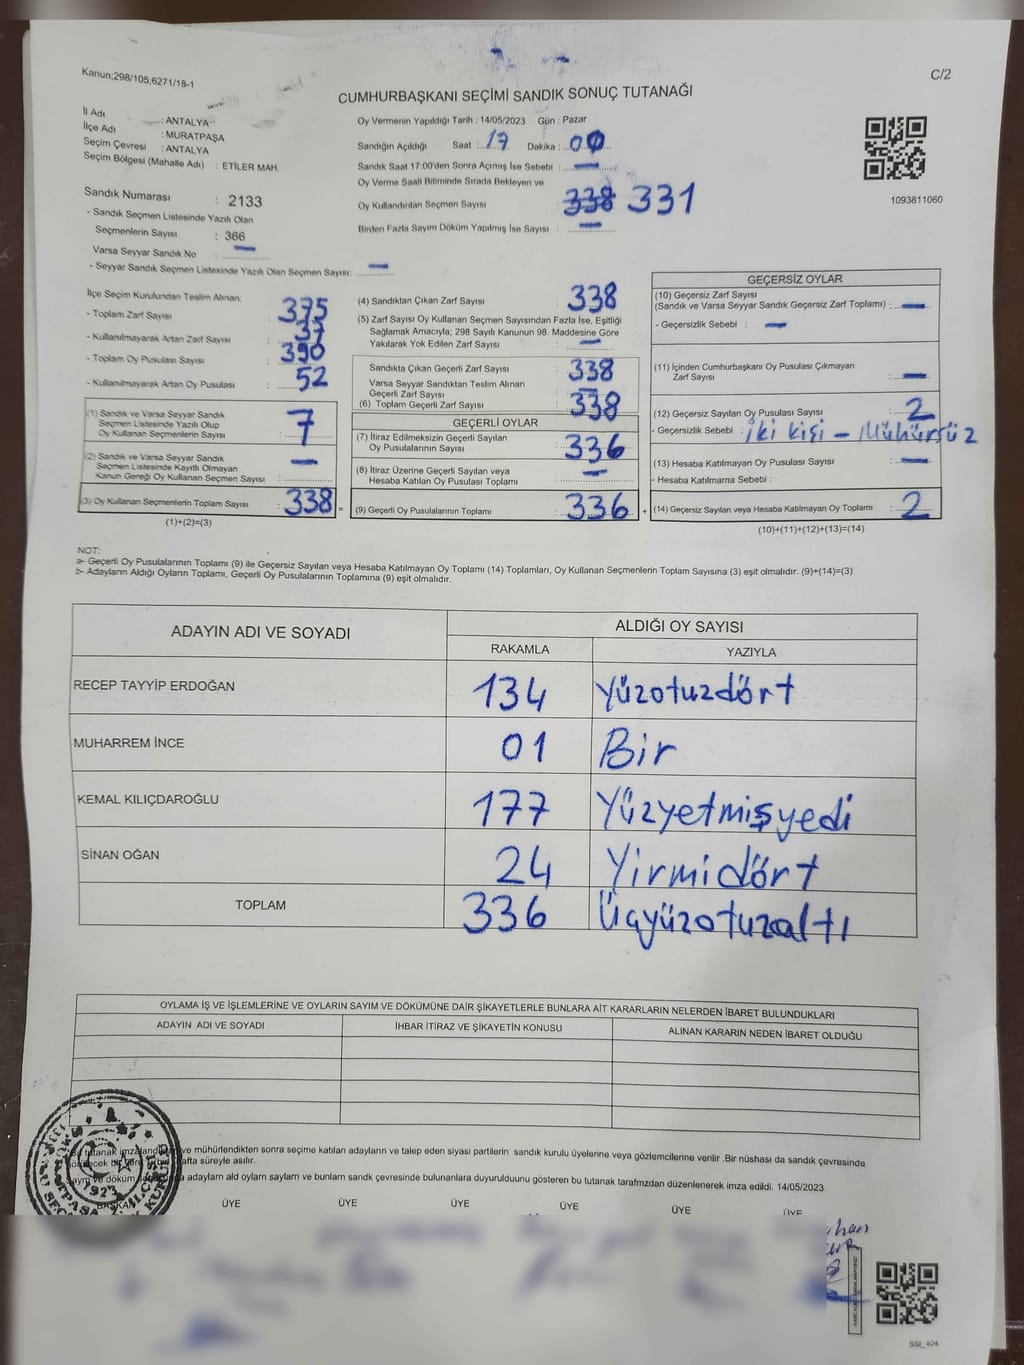 Kanun;298/105,6271/18-1
C/2
CUMHURBAŞKANI SEÇİMİ SANDIK SONUÇ TUTANAĞI
İl Adı : ANTALYA
İlçe Adı : MURATPAŞA
Seçim Çevresi : ANTALYA
Seçim Bölgesi (Mahalle Adı) : ETİLER MAH.
Sandık Numarası : 2133
- Sandık Seçmen Listesinde Yazılı Olan
Seçmenlerin Sayısı : 366
Varsa Seyyar Sandık No : —
- Seyyar Sandık Seçmen Listesinde Yazılı Olan Seçmen Sayısı: —
Oy Vermenin Yapıldığı Tarih : 14/05/2023 Gün : Pazar
Sandığın Açıldığı Saat : 17 Dakika : 00
Sandık Saat 17:00'den Sonra Açımış İse Sebebi : —
Oy Verme Saati Bitiminde Sırada Bekleyen ve
Oy Kullandırılan Seçmen Sayısı : 338 331
Birden Fazla Sayım Döküm Yapılmış İse Sayısı : —
1093811060
İlçe Seçim Kurulundan Teslim Alınan:
- Toplam Zarf Sayısı : 375
- Kullanılmayarak Artan Zarf Sayısı : 37
- Toplam Oy Pusulası Sayısı : 390
- Kullanılmayarak Artan Oy Pusulası : 52
(1) Sandık ve Varsa Seyyar Sandık
Seçmen Listesinde Yazılı Olup
Oy Kullanan Seçmenlerin Sayısı : 7
(2) Sandık ve Varsa Seyyar Sandık
Seçmen Listesinde Kayıtlı Olmayan
Kanun Gereği Oy Kullanan Seçmen Sayısı : —
(3) Oy Kullanan Seçmenlerin Toplam Sayısı : 338 =
(1)+(2)=(3)
(4) Sandıktan Çıkan Zarf Sayısı : 338
(5) Zarf Sayısı Oy Kullanan Seçmen Sayısından Fazla İse, Eşitliği
Sağlamak Amacıyla; 298 Sayılı Kanunun 98. Maddesine Göre
Yakılarak Yok Edilen Zarf Sayısı : —
Sandıkta Çıkan Geçerli Zarf Sayısı : 338
Varsa Seyyar Sandıktan Teslim Alınan
Geçerli Zarf Sayısı : —
(6) Toplam Geçerli Zarf Sayısı : 338
GEÇERLİ OYLAR
(7) İtiraz Edilmeksizin Geçerli Sayılan
Oy Pusulalarının Sayısı : 336
(8) İtiraz Üzerine Geçerli Sayılan veya
Hesaba Katılan Oy Pusulası Toplamı : —
(9) Geçerli Oy Pusulalarının Toplamı : 336 +
GEÇERSİZ OYLAR
(10) Geçersiz Zarf Sayısı
(Sandık ve Varsa Seyyar Sandık Geçersiz Zarf Toplamı) : —
- Geçersizlik Sebebi : —
(11) İçinden Cumhurbaşkanı Oy Pusulası Çıkmayan
Zarf Sayısı : —
(12) Geçersiz Sayılan Oy Pusulası Sayısı : 2
- Geçersizlik Sebebi : iki kişi - Mühürsüz
(13) Hesaba Katılmayan Oy Pusulası Sayısı : —
- Hesaba Katılmama Sebebi :
(14) Geçersiz Sayılan veya Hesaba Katılmayan Oy Toplamı : 2
(10)+(11)+(12)+(13)=(14)
NOT:
a- Geçerli Oy Pusulalarının Toplamı (9) ile Geçersiz Sayılan veya Hesaba Katılmayan Oy Toplamı (14) Toplamları, Oy Kullanan Seçmenlerin Toplam Sayısına (3) eşit olmalıdır. (9)+(14)=(3)
b- Adayların Aldığı Oyların Toplamı, Geçerli Oy Pusulalarının Toplamına (9) eşit olmalıdır.
ADAYIN ADI VE SOYADI ALDIĞI OY SAYISI
RAKAMLA YAZIYLA
RECEP TAYYİP ERDOĞAN 134 Yüzotuzdört
MUHARREM İNCE 01 Bir
KEMAL KILIÇDAROĞLU 177 Yüzyetmişyedi
SİNAN OĞAN 24 Yirmidört
TOPLAM 336 Üçyüzotuzaltı
OYLAMA İŞ VE İŞLEMLERİNE VE OYLARIN SAYIM VE DÖKÜMÜNE DAİR ŞİKAYETLERLE BUNLARA AİT KARARLARIN NELERDEN İBARET BULUNDUKLARI
ADAYIN ADI VE SOYADI İHBAR İTİRAZ VE ŞİKAYETİN KONUSU ALINAN KARARIN NEDEN İBARET OLDUĞU
Bu tutanak imzalandı ve mühürlendikten sonra seçime katılan adayların ve talep eden siyasi partilerin sandık kurulu üyelerine veya gözlemcilerine verilir .Bir nüshası da sandık çevresinde
afta süreyle asılır.
adayların ald oyların sayların ve bunların sandk çevresinde bulunanlara duyurulduunu gösteren bu tutanak tarafmzdan düzenlenerek imza edildi. 14/05/2023
BAŞKAN ÜYE ÜYE ÜYE ÜYE ÜYE ÜYE